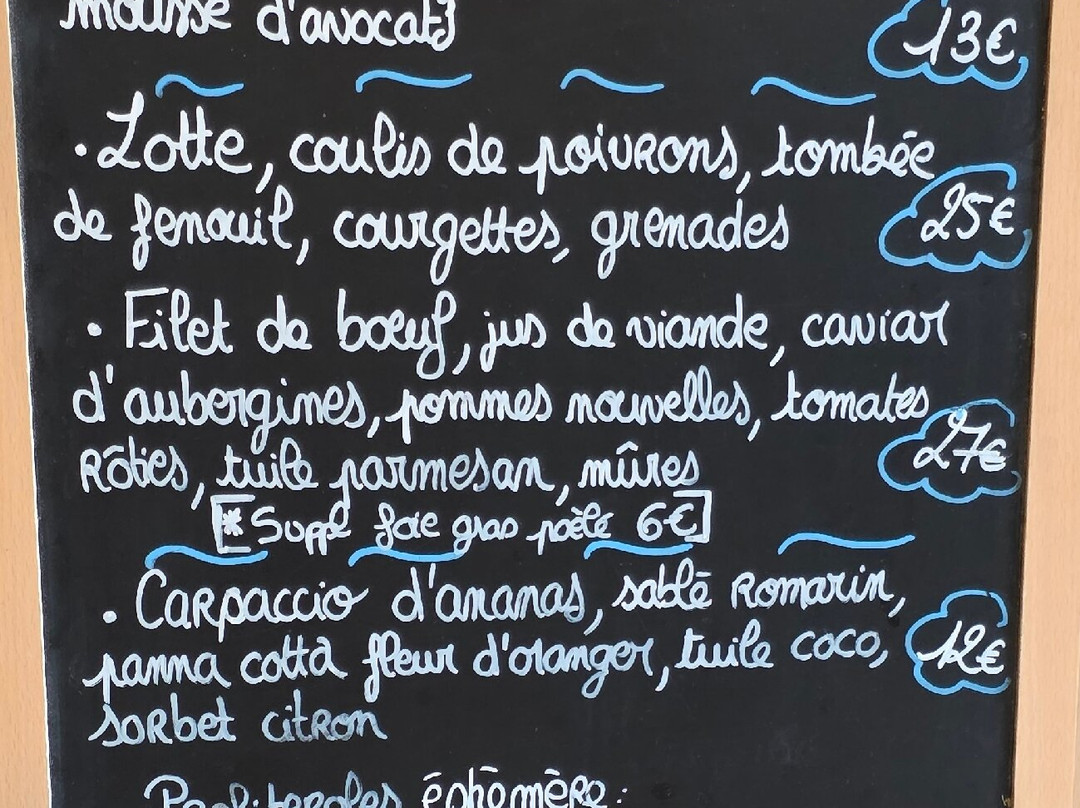 mousse d'avocat} 13€
• Lotte, coulis de poivrons, tombée
de fenouil, courgettes, grenades 25€
• Filet de bœuf, jus de viande, caviar
d'aubergines, pommes nouvelles, tomates
Rôties, tuile parmesan, mûres 27€
[* Suppl foie gras poêlé 6€]
• Carpaccio d'ananas, sablé Romarin,
panna cotta fleur d'oranger, tuile coco, 12€
sorbet citron
éphémère: